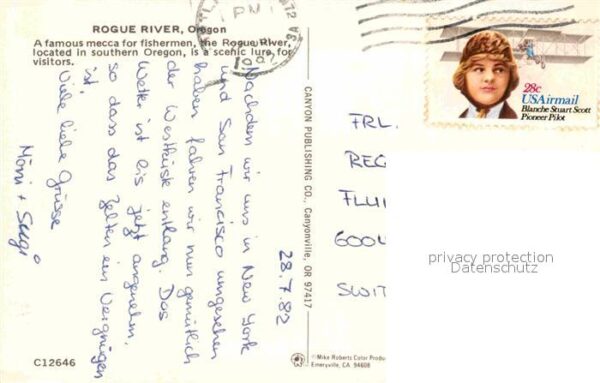 ROGUE RIVER, Oregon
A famous mecca for fishermen, the Rogue River,
located in southern Oregon, is a scenic lure for
visitors.
28.7.82
Nachdem wir uns in New York
und San Francisco umgesehen
haben fahren wir nun gemütlich
der Westküste entlang. Das
Wetter ist bis jetzt angenehm,
so dass das Zelten ein Vergnügen
ist.
Viele liebe Grüsse
Moni +
CANYON PUBLISHING CO., Canyonville, OR 97417
C12646
©Mike Roberts Color Produ
Emeryville, CA 94608
PM
28c
USAirmail
Blanche Stuart Scott
Pioneer Pilot
FRL.
REG
FLU
GOOL
SWIT
privacy protection
Datenschutz